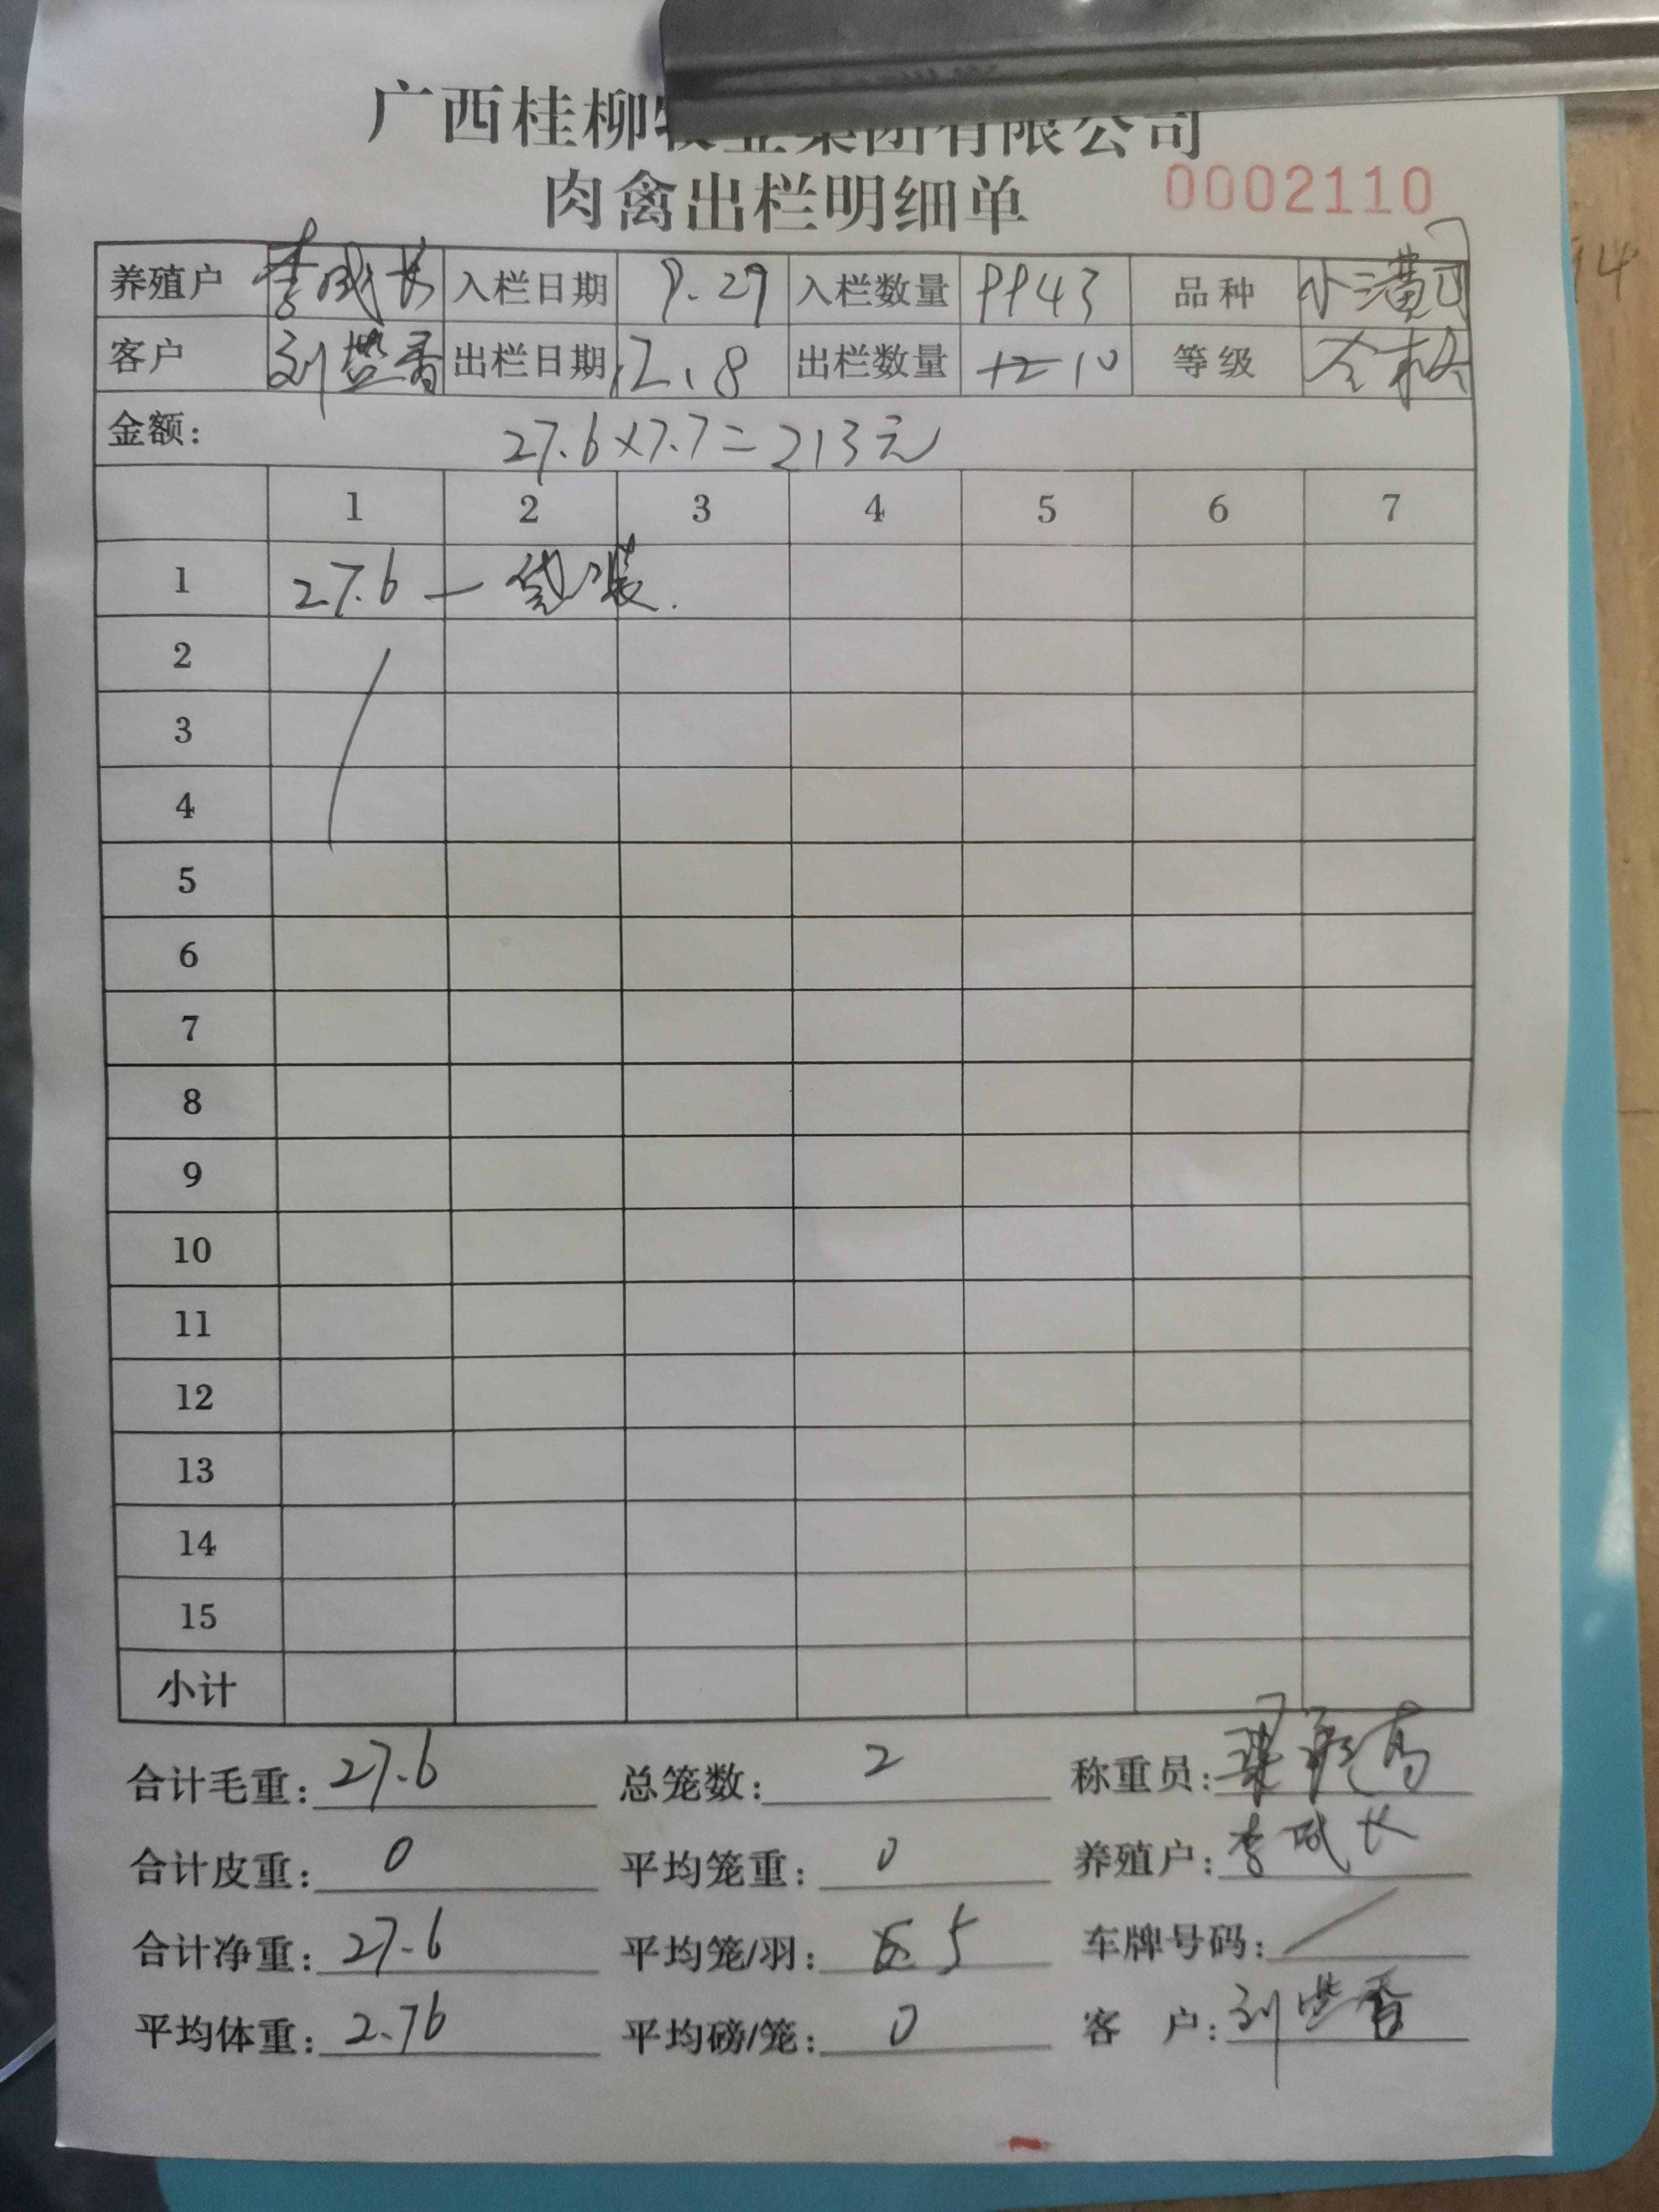 广西桂柳牧业集团有限公司
肉禽出栏明细单 0002110
养殖户 李成长 入栏日期 9.29 入栏数量 9943 品种
客户 出栏日期 12.8 出栏数量 10 等级
金额: 27.6×7.7=213元
1 2 3 4 5 6 7
1 27.6 — 袋装.
2
3
4
5
6
7
8
9
10
11
12
13
14
15
小计
合计毛重: 27.6 总笼数: 2 称重员:
合计皮重: 0 平均笼重: 0 养殖户: 李成长
合计净重: 27.6 平均笼/羽: 5 车牌号码: /
平均体重: 2.76 平均磅/笼: 0 客 户: